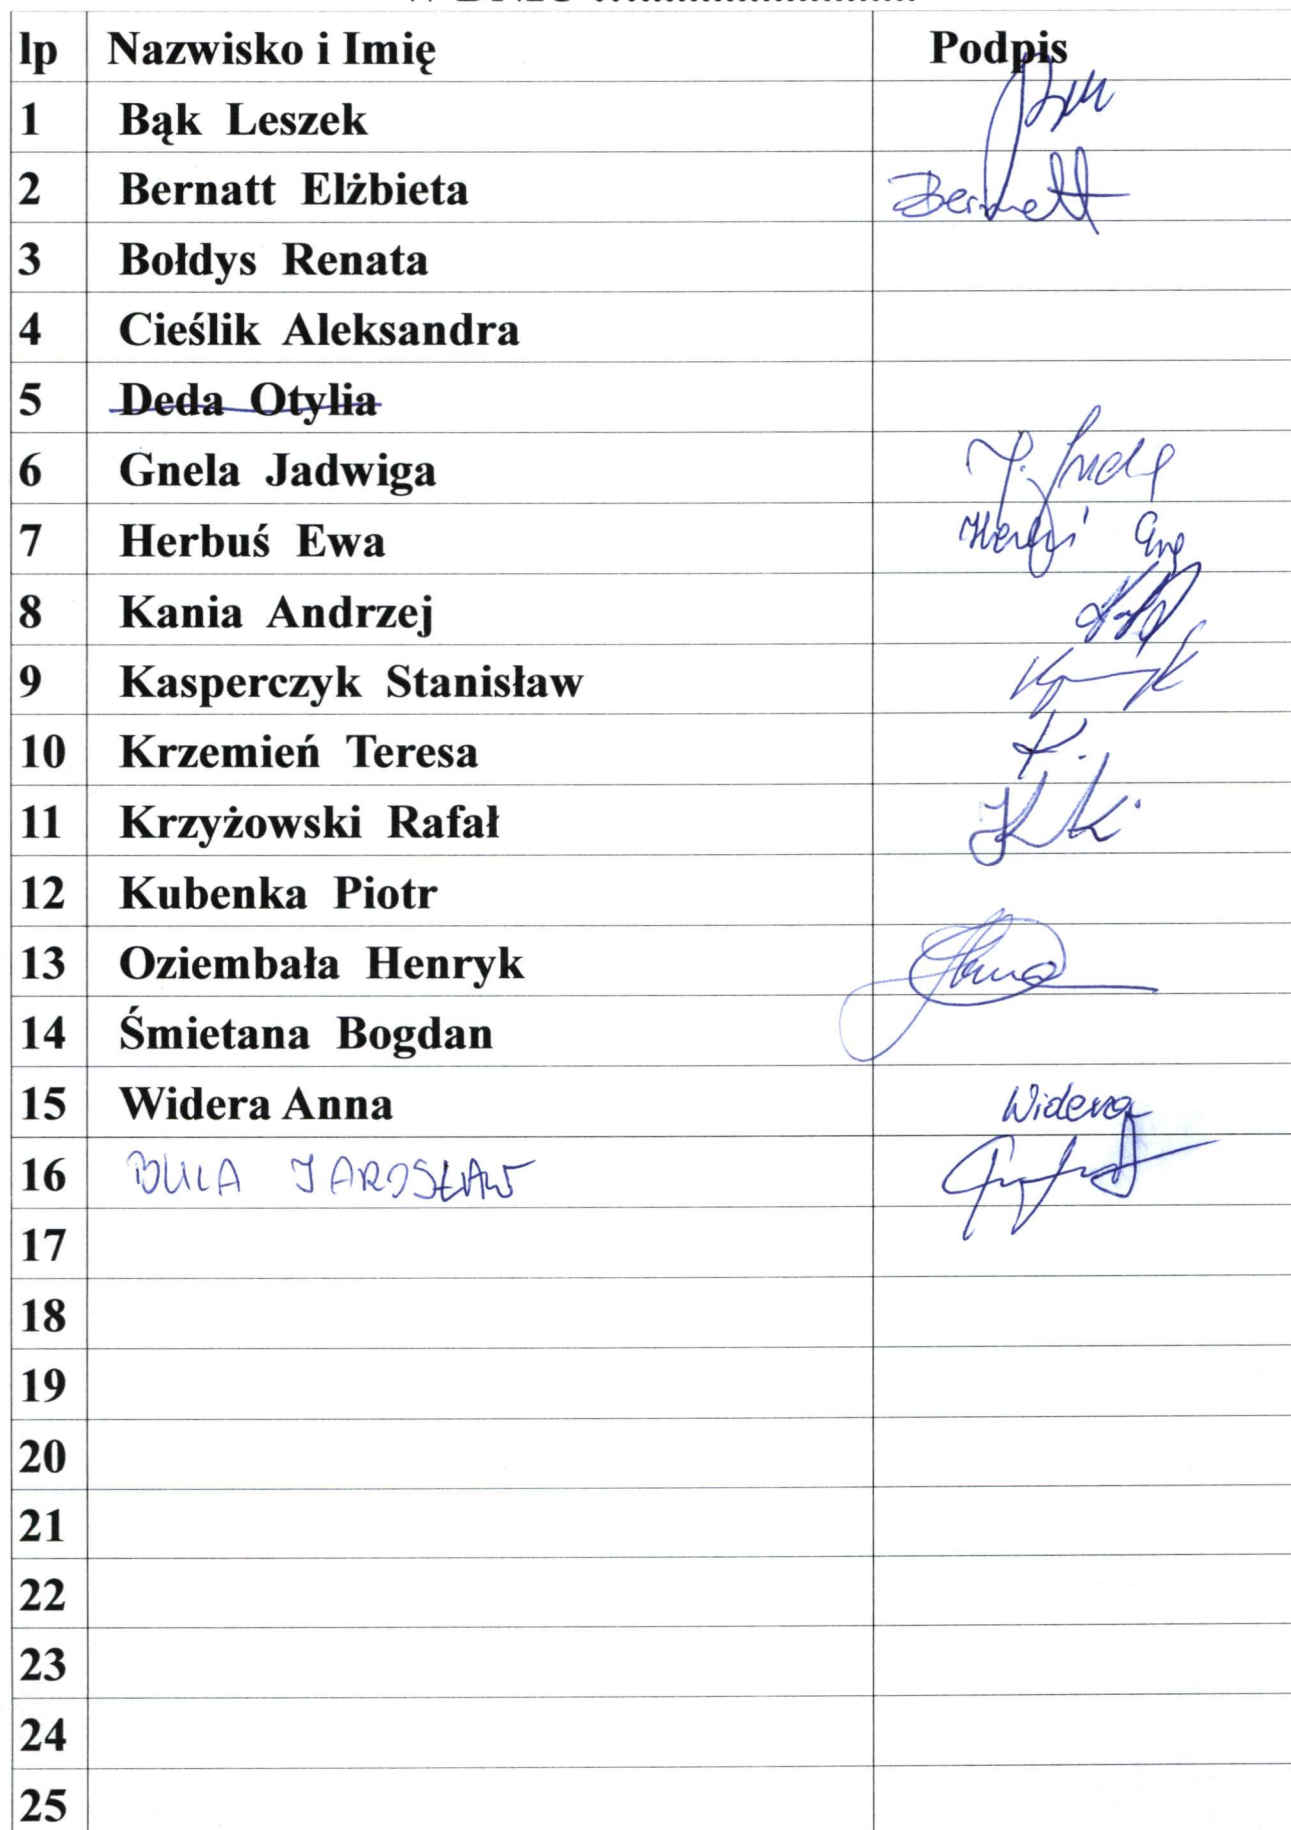 lp Nazwisko i Imię Podpis
1 Bąk Leszek
2 Bernatt Elżbieta Bernatt
3 Bołdys Renata
4 Cieślik Aleksandra
5 Deda Otylia
6 Gnela Jadwiga
7 Herbuś Ewa Herbuś Ewa
8 Kania Andrzej
9 Kasperczyk Stanisław
10 Krzemień Teresa K.
11 Krzyżowski Rafał
12 Kubenka Piotr
13 Oziembała Henryk
14 Śmietana Bogdan
15 Widera Anna Widera
16 BULA JAROSŁAW
17
18
19
20
21
22
23
24
25